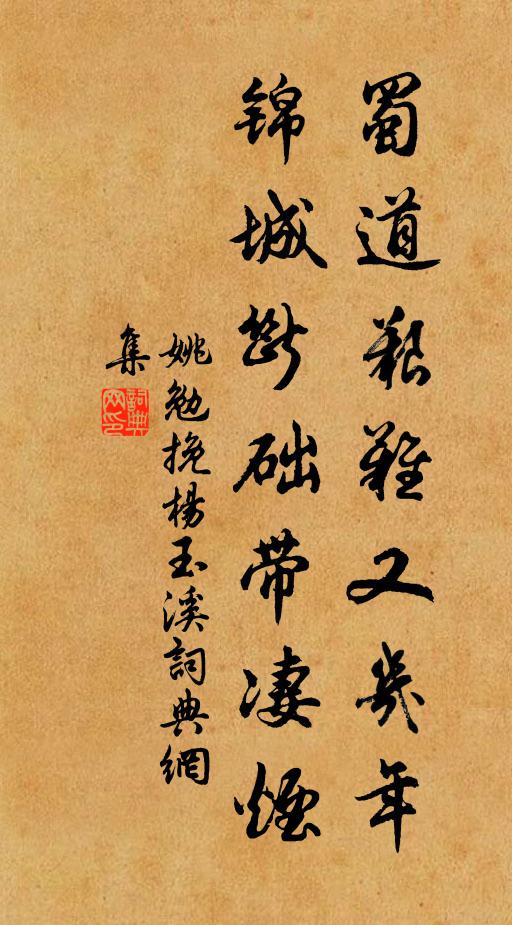 蜀道艱難又幾年
錦城斷础帶凄煙
姚勉挽楊玉溪詞典網
集
詞典網印